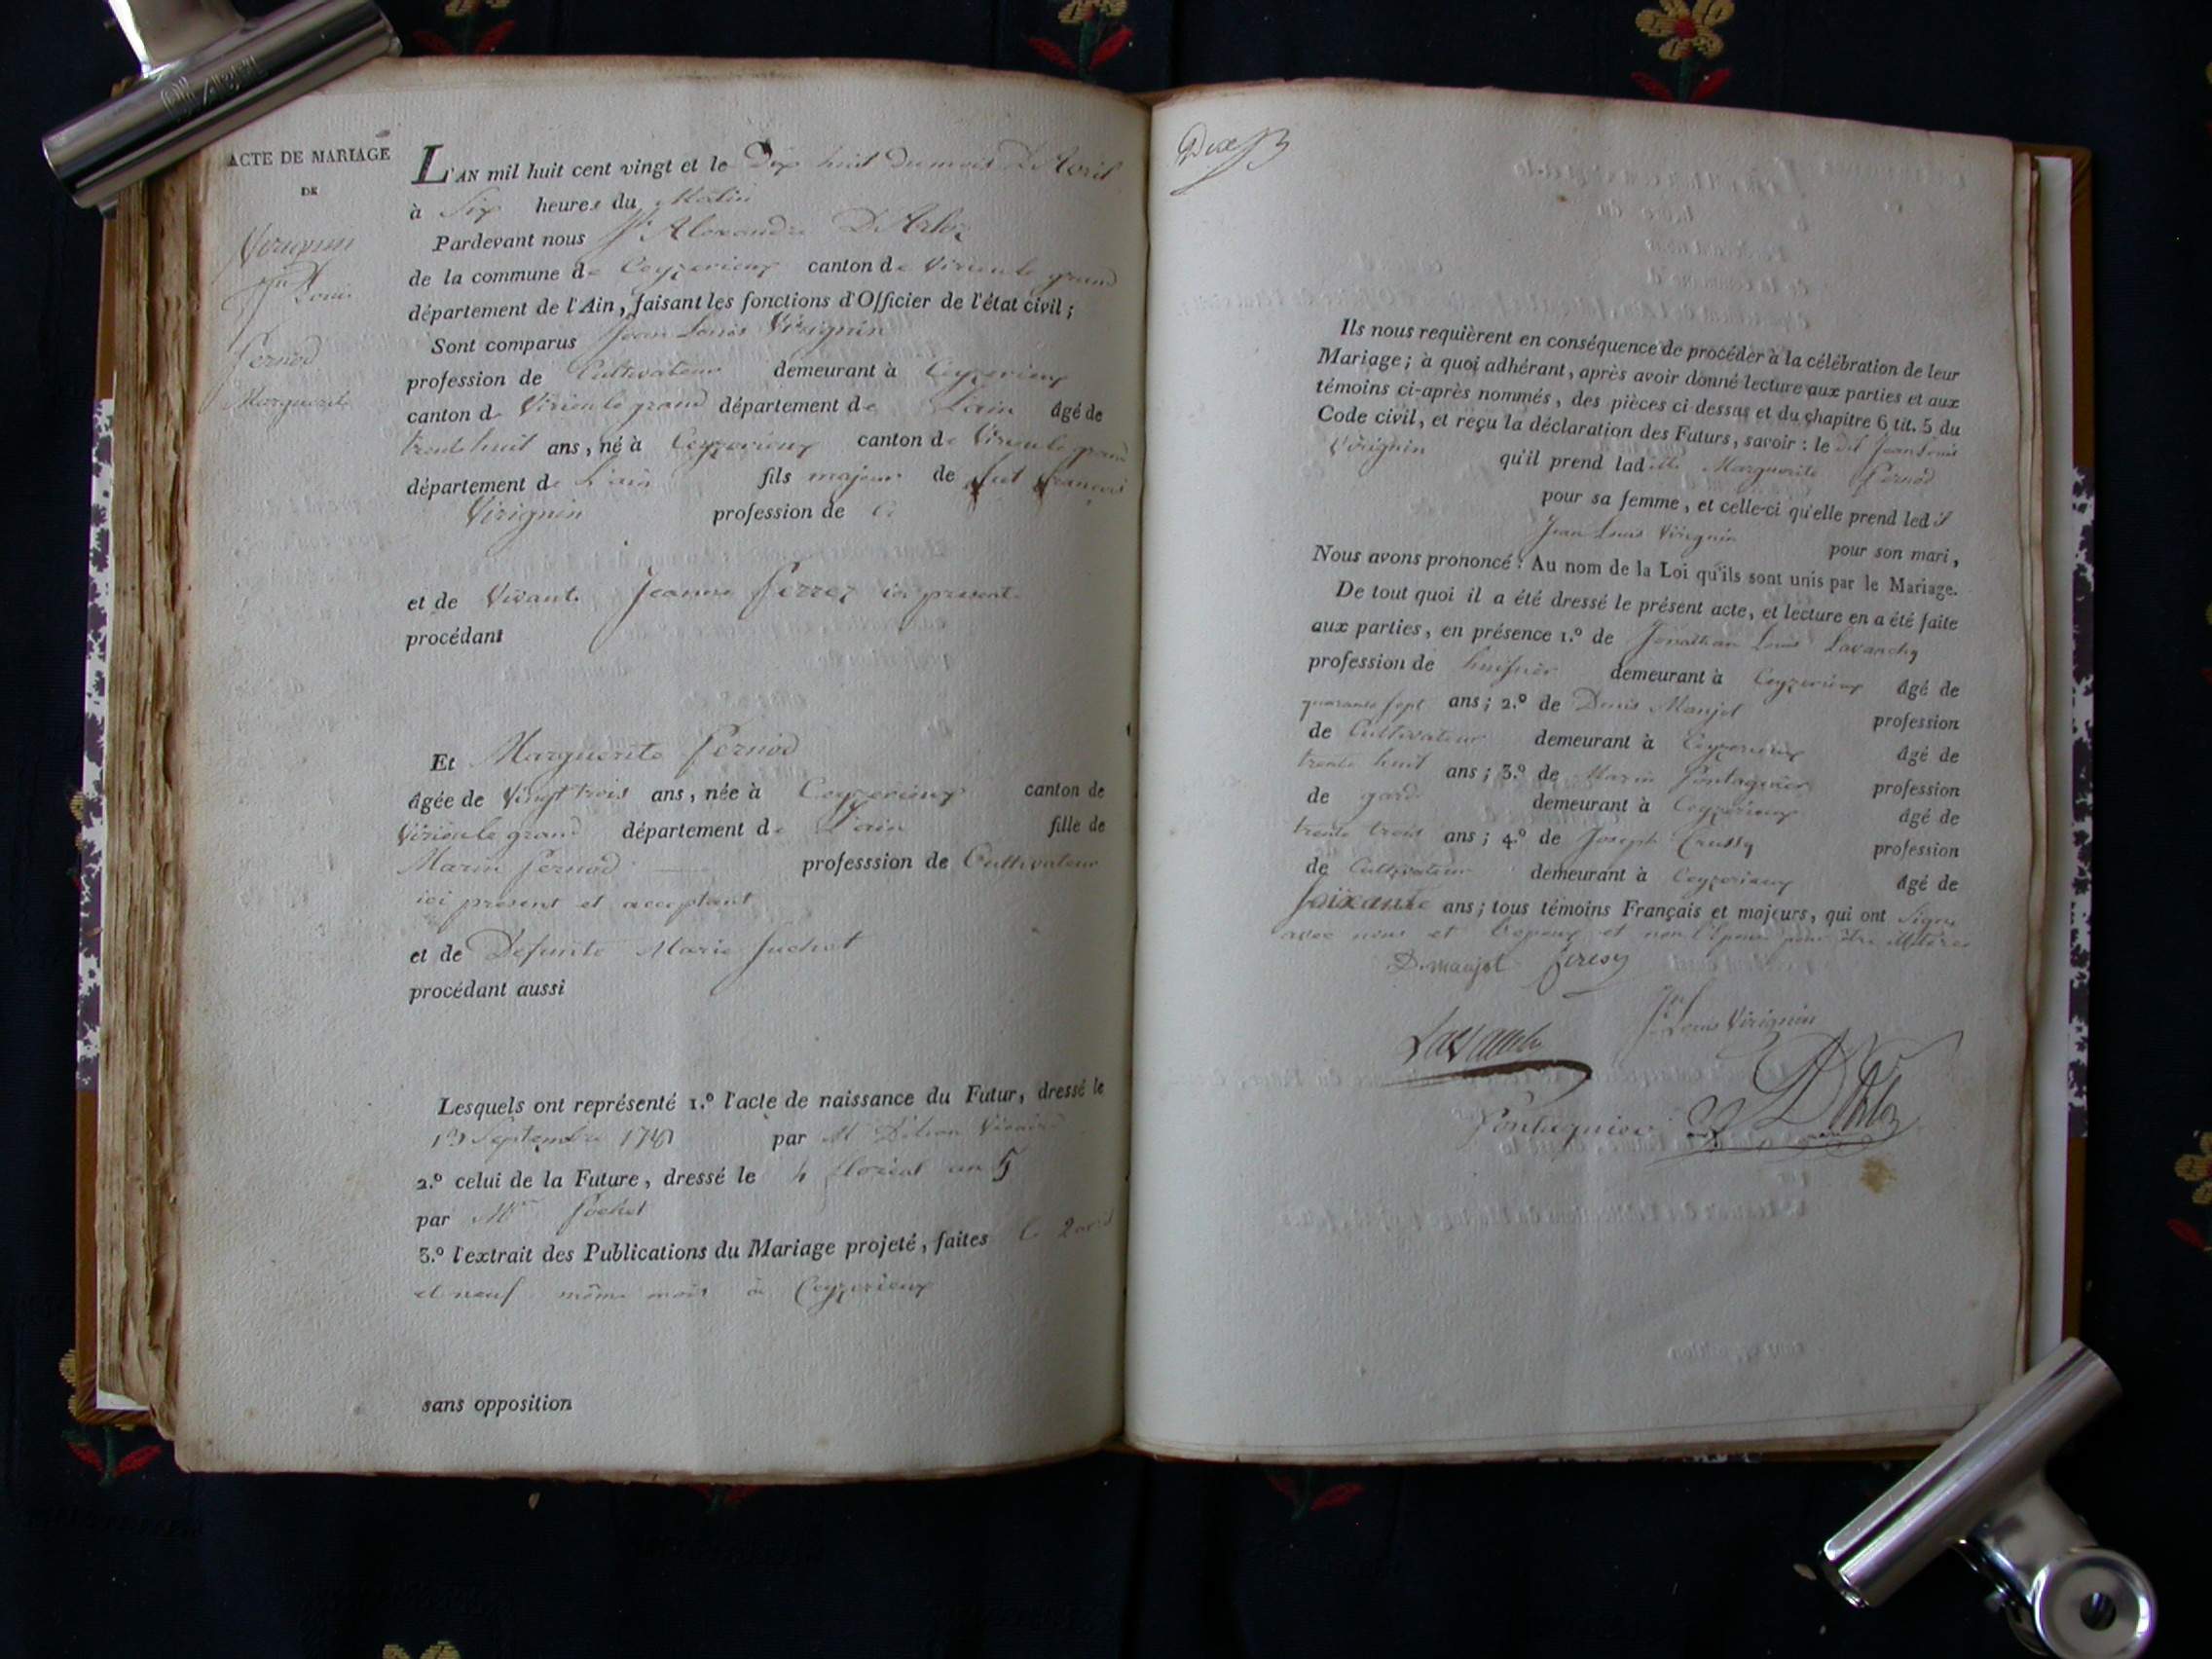 ACTE DE MARIAGE
DE
Virignin
Jn Louis
Pernod
Marguerite
L'AN mil huit cent vingt et le Dix huit du mois D'Avril
à Six heures du Matin
Pardevant nous Jh Alexandre D'Arloz
de la commune de Ceyzerieux canton de Virieu le grand
département de l'Ain, faisant les fonctions d'Officier de l'état civil;
Sont comparus Jean Louis Virignin
profession de Cultivateur demeurant à Ceyzerieux
canton de Virieu le grand département de L'ain âgé de
trente huit ans, né à Ceyzerieux canton de Virieu le grand
département de L'ain fils majeur de feu françois
Virignin profession de
et de Vivante Jeanne Perrez ici presente
procédant
Et Marguerite Pernod
âgée de Vingt trois ans, née à Ceyzerieux canton de
Virieu le grand département de L'ain fille de
Marin Pernod professsion de Cultivateur
ici present et acceptant
et de Defunte Marie Juchet
procédant aussi
Lesquels ont représenté 1.º l'acte de naissance du Futur, dressé le
Septembre 1781 par Mr Vicaire
2.º celui de la Future, dressé le 4 floréal an 5
par Mr Pochet
3.º l'extrait des Publications du Mariage projeté, faites le 2 avril
et neuf même mois à Ceyzerieux
sans opposition
Dix
Ils nous requièrent en conséquence de procéder à la célébration de leur
Mariage; à quoi adhérant, après avoir donné lecture aux parties et aux
témoins ci-après nommés, des pièces ci-dessus et du chapitre 6 tit. 5 du
Code civil, et reçu la déclaration des Futurs, savoir: le dit Jean Louis
Virignin qu'il prend ladite Marguerite Pernod
pour sa femme, et celle-ci qu'elle prend ledit
Jean Louis Virignin pour son mari,
Nous avons prononcé: Au nom de la Loi qu'ils sont unis par le Mariage.
De tout quoi il a été dressé le présent acte, et lecture en a été faite
aux parties, en présence 1.º de Jonathan Louis Lavanchy
profession de huissier demeurant à Ceyzerieux âgé de
quarante sept ans; 2.º de Denis Manjot profession
de Cultivateur demeurant à Ceyzerieux âgé de
trente huit ans; 3.º de Marin Pontagnier profession
de garde demeurant à Ceyzerieux âgé de
trente trois ans; 4.º de Joseph Crussy profession
de Cultivateur demeurant à Ceyzerieux âgé de
soixante ans; tous témoins Français et majeurs, qui ont signé
avec nous et l'epoux et non l'épouse pour être illitérée
D. manjot
Jn Louis Virignin
Lavanchy
Pontagnier D'Arloz